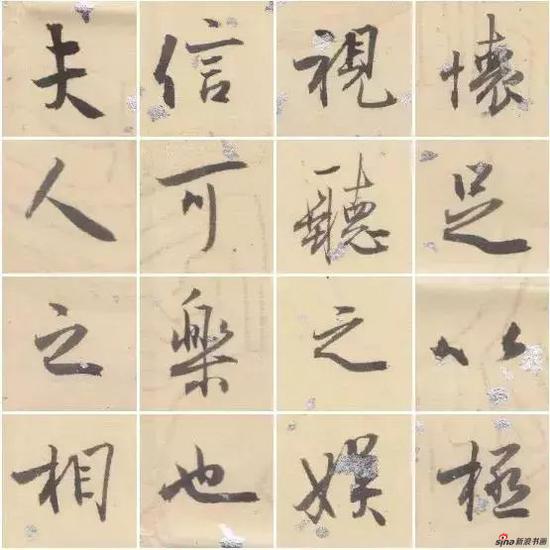 懷足以極
視聽之娛
信可樂也
夫人之相
sina新浪书画